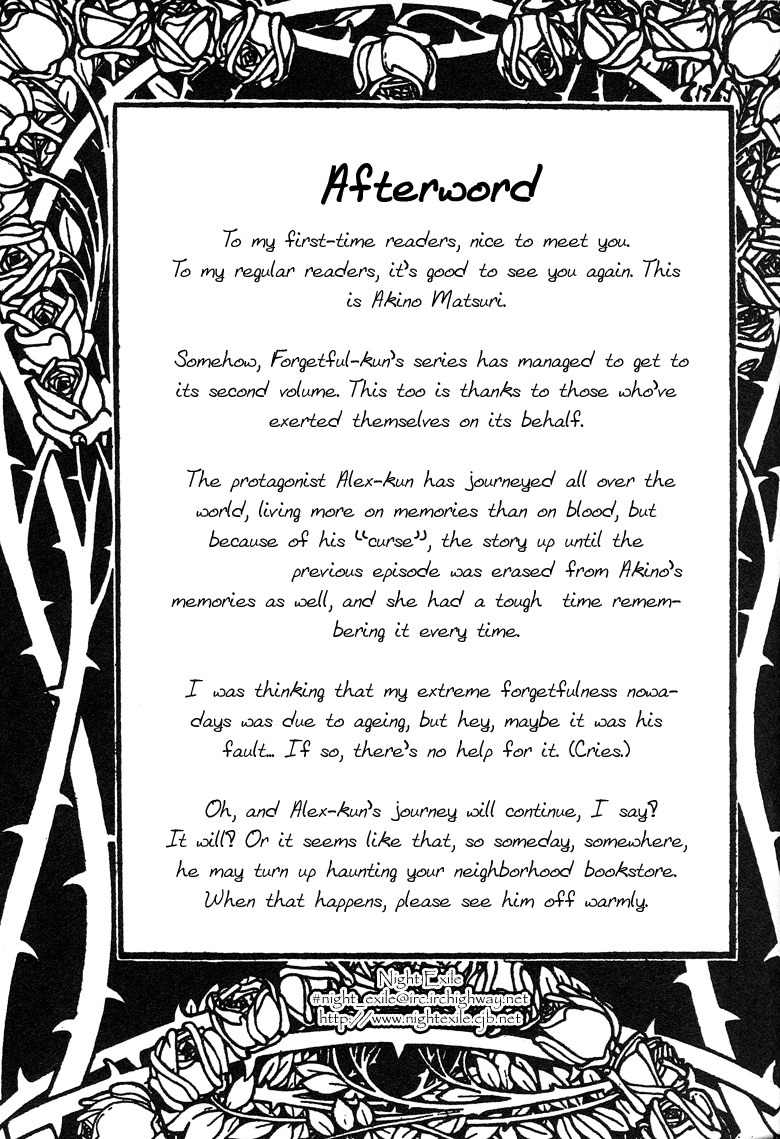 Afterword
To my first-time readers, nice to meet you.
To my regular readers, it's good to see you again. This
is Akino Matsuri.
Somehow, Forgetful-kun's series has managed to get to
its second volume. This too is thanks to those who've
exerted themselves on its behalf.
The protagonist Alex-kun has journeyed all over the
world, living more on memories than on blood, but
because of his "curse", the story up until the
previous episode was erased from Akino's
memories as well, and she had a tough time remem-
bering it every time.
I was thinking that my extreme forgetfulness nowa-
days was due to ageing, but hey, maybe it was his
fault... If so, there's no help for it. (Cries.)
Oh, and Alex-kun's journey will continue, I say?
It will? Or it seems like that, so someday, somewhere,
he may turn up haunting your neighborhood bookstore.
When that happens, please see him off warmly.
Night Exile
#night_exile@irc.irchighway.net
http://www.nightexile.cjb.net